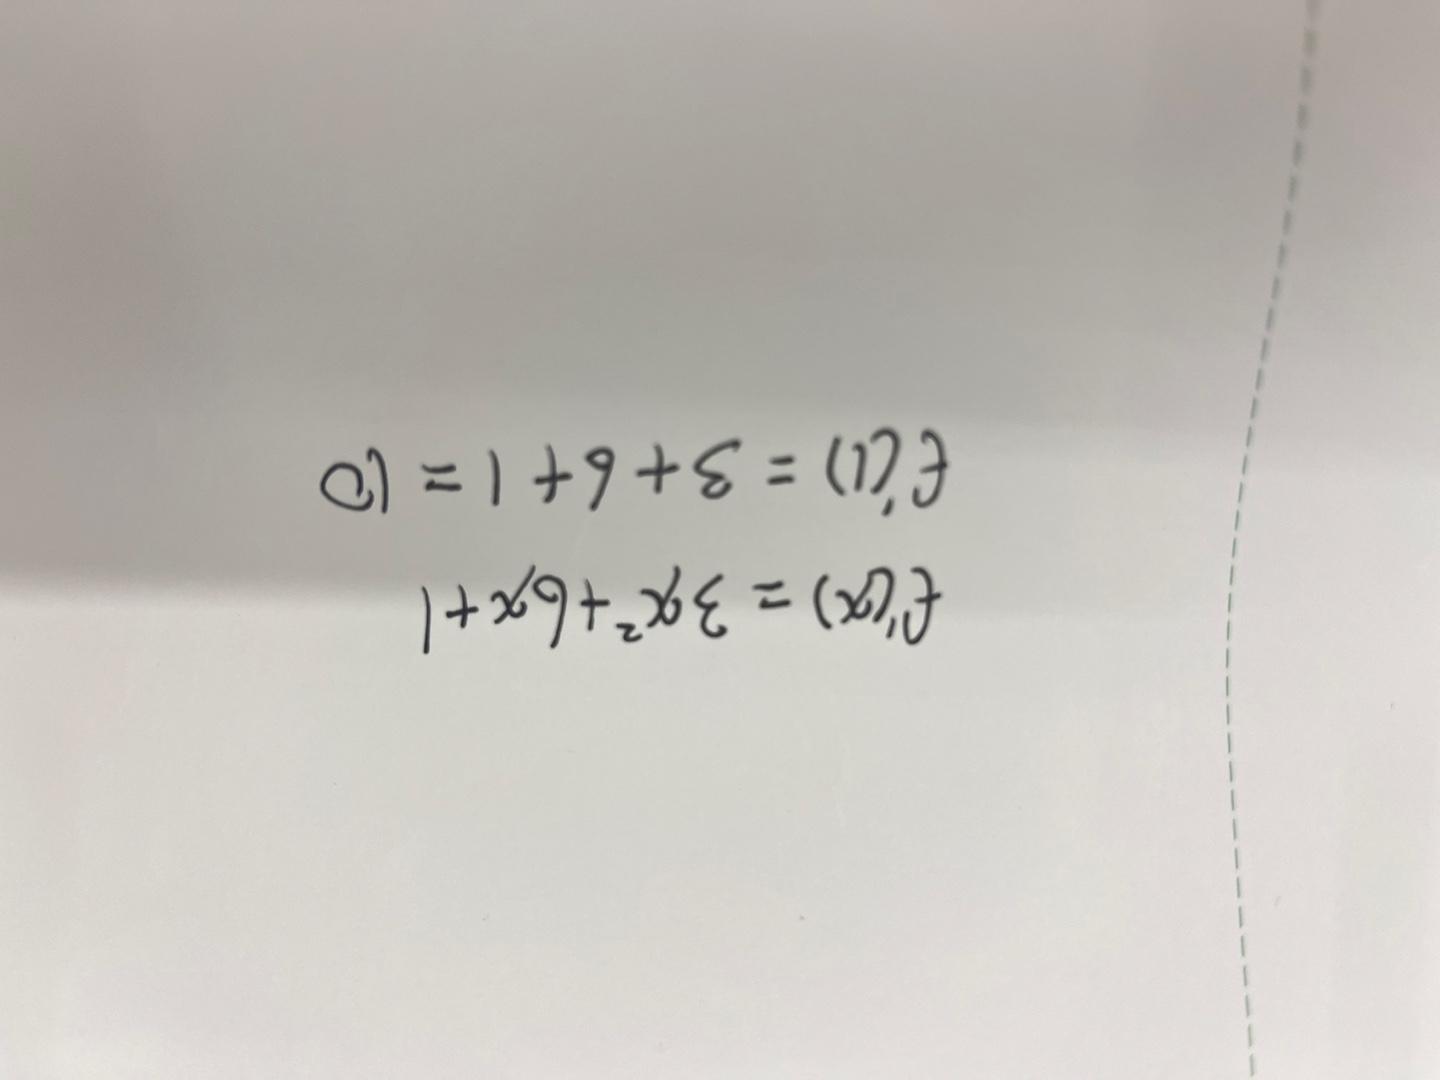 f'(x) = 3x²+6x+1
f'(1) = 3+6+1 = 10